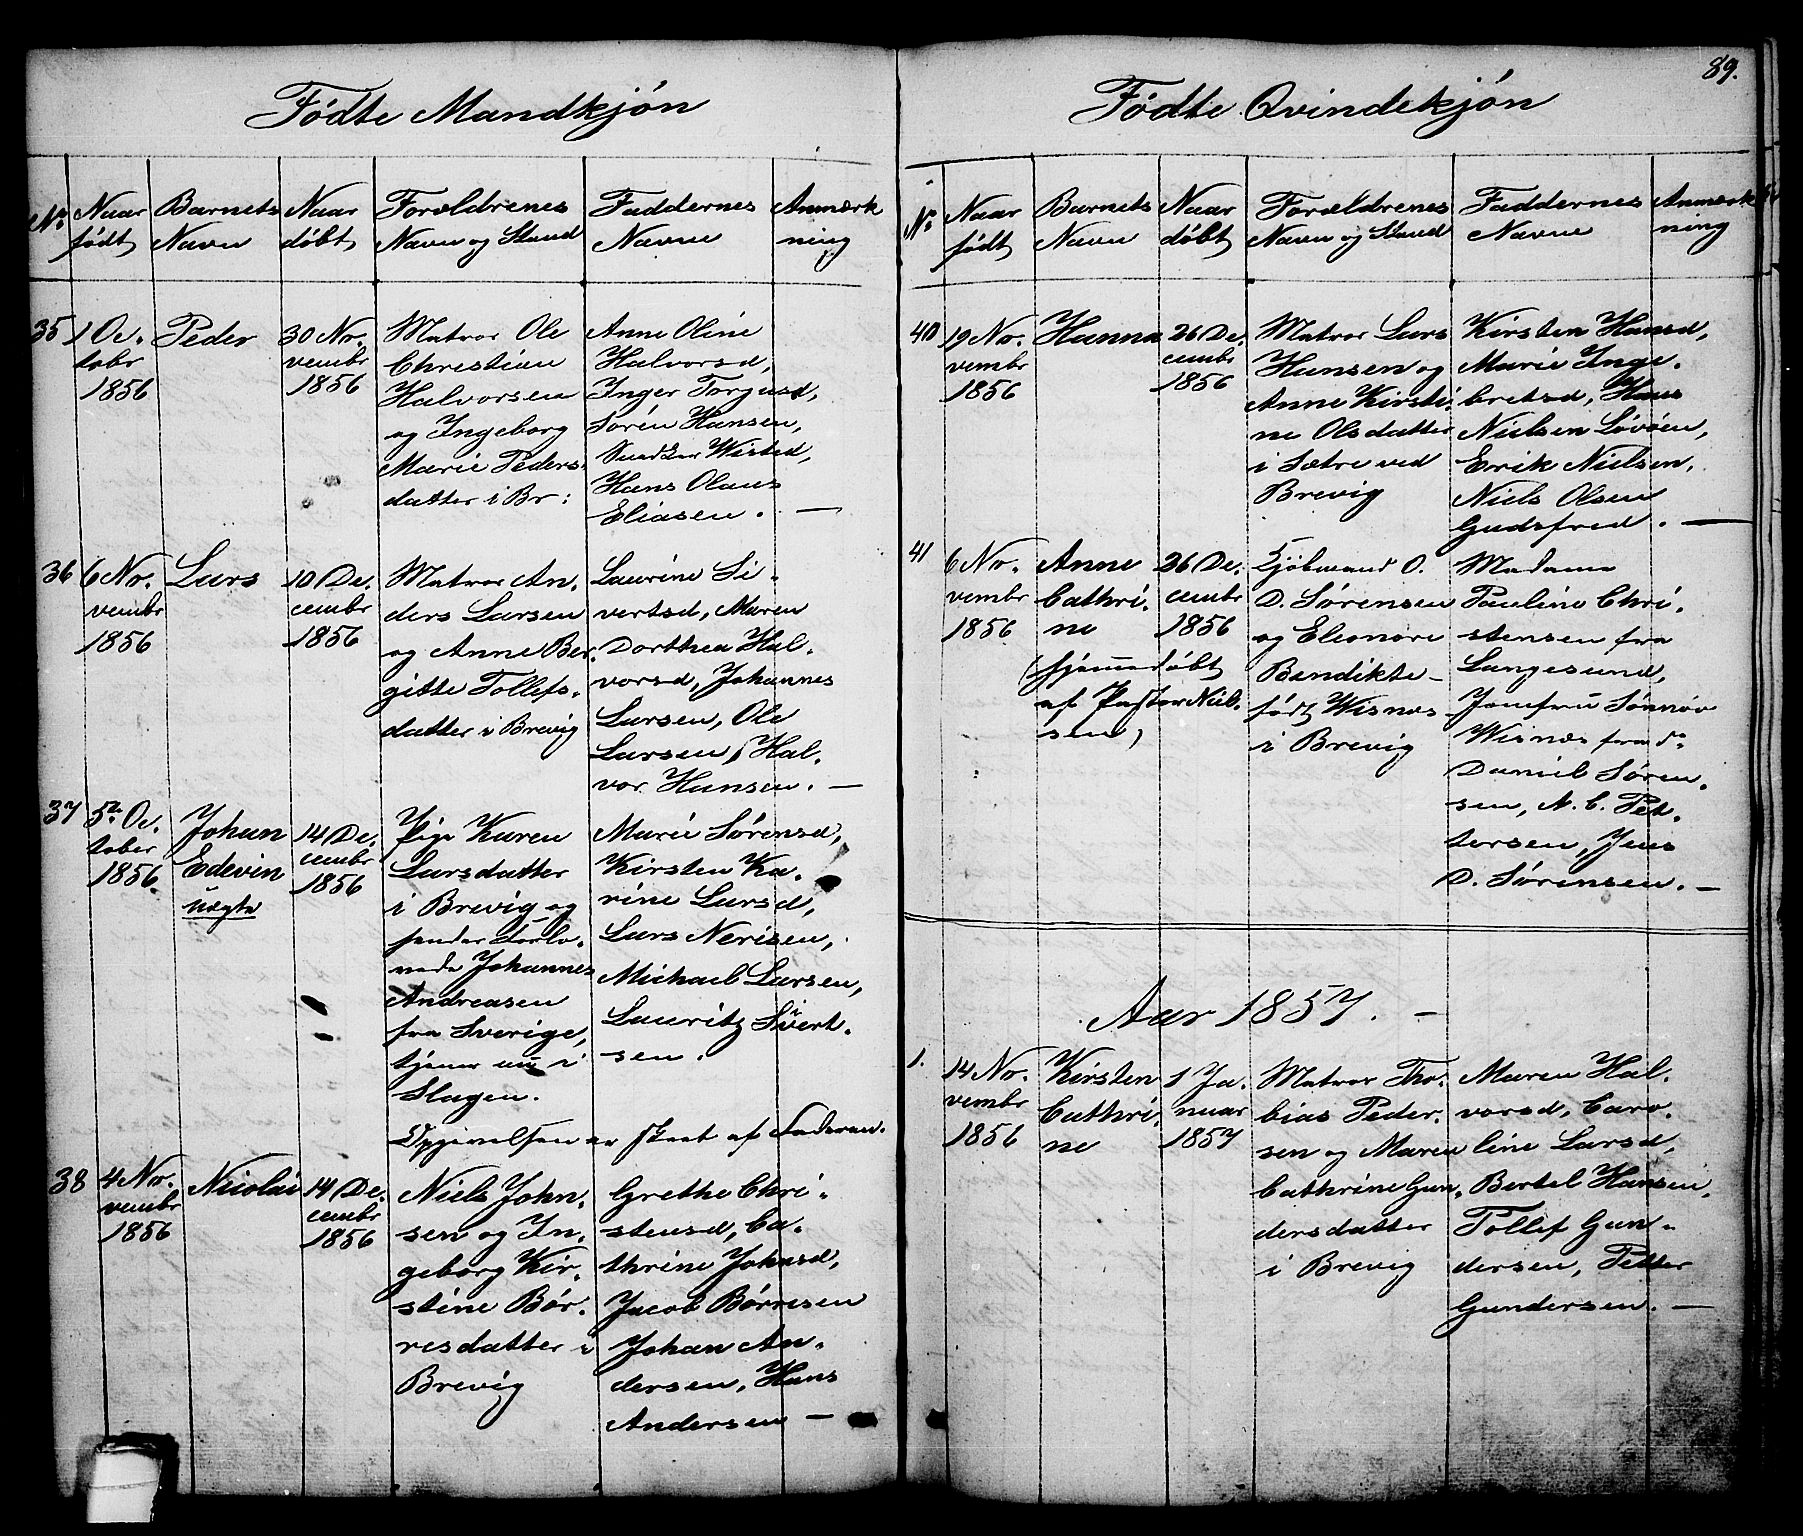 89.
Fødte Mandkjøn
No
Naar født
Barnets Navn
Naar døbt
Forældrenes Navn og Stand
Faddernes Navne
Anmærkning
35
1 Oc.
tober
1856
Peder
30 No.
vembr
1856
Matros Ole
Christian
Halvorsen
og Ingeborg
Marie Peders-
datter i Br:
Anne Oline
Halvorsd,
Inger Torgusd,
Søren Hansen,
Wisted,
Hans Olaus
Eliasen. —
36
6 No.
vembr
1856
Lars
10 De.
cembr
1856
Matros An.
ders Larsen
og Anne Ber.
gitte Tollefs.
datter i Brevig
Laurine Si.
vertsd, Maren
Dorthea Hal.
vorsd, Johannes
Larsen, Ole
Larsen, Hal.
vor Hansen. —
37
5te Oc.
tober
1856
Johan
Edevin
uægte
14 De.
cembr
1856
Pige Karen
Larsdatter
i Brevig og
hendes Forlo.
vede Johannes
Andreasen
fra Sverige,
tjener nu i
Slagen.
Opgivelsen er skeet af Faderen.
Marie Sørensd,
Kirsten Ka.
rine Larsd,
Lars Nerisen,
Michael Larsen,
Lauritz Sivert.
sen.
38
4 No.
vembr
1856
Nicolai
14 De.
cembr
1856
Niels John.
sen og In.
geborg Kir.
stine Bør.
resdatter i
Brevig
Grethe Chri.
stensd, Ca.
thrine Johnsd,
Jacob Børresen
Johan An.
dersen, Hans
Andersen —
Fødte Qvindekjøn
No
Naar født
Barnets Navn
Naar døbt
Forældrenes Navn og Stand
Faddernes Navne
Anmærkning
40
19 No.
vembr
1856
Hanna
26 De.
cembr
1856
Matros Lars
Hansen og
Anne Kirsti.
ne Olsdatter
i Sætre ved
Brevig
Kirsten Hansd,
Marie Inge.
bretsd, Hans
Nielsen Løvøen,
Erik Nielsen,
Niels Olsen
Gudsfred. —
41
6 No.
vembr
1856
Anne
Cathri.
ne
(hjemmedøbt
af Pastor Niel.
sen)
26 De.
cembr
1856
Kjøbmand O.
D. Sørensen
og Eleonore
Bendikte
født Wisnæs
i Brevig
Madame
Pauline Chri.
stensen fra
Langesund,
Jomfru Sønnøv
Wisnæs fra do
Daniel Søren.
sen, N. C. Pet.
tersen, Jens
D. Sørensen. —
Aar 1857. —
1.
14 No.
vembr
1856
Kirsten
Cathri.
ne
1 Ja.
nuar
1857
Matros Tho.
bias Peder.
sen og Maren
Cathrine Gun.
dersdatter
i Brevig
Maren Hal.
vorsd, Caro.
line Larsd,
Bertel Hansen,
Tollef Gun.
dersen, Petter
Gundersen. —